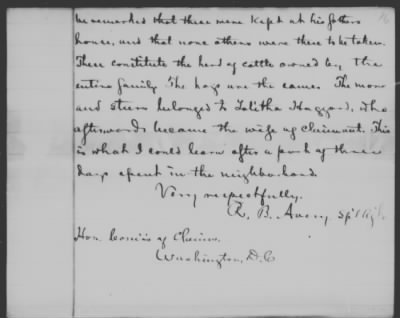 16
he remarked that these were kept at his fathers
house, and that none others were there to be taken.
These constitute the herd of cattle owned by the
entire family. The hogs were the same. The mare
and steers belonged to Talitha Haggard, who
afterwards became the wife of Claimant. This
is what I could learn after a part of three
days spent in the neighborhood.
Very respectfully,
R. B. Avery, Sp'l Ag't
Hon. Comrs of Claims,
Washington, D.C